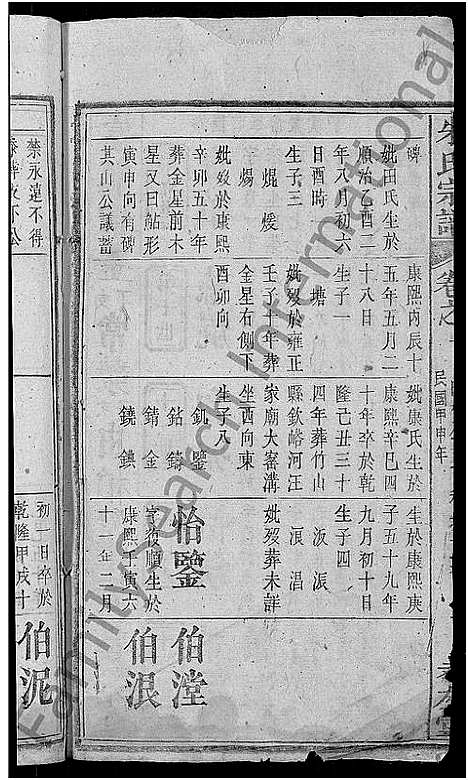 朱氏宗譜
卷之一
民國甲申年
碑
妣田氏生於
順治乙酉二
年八月初六
日酉時
生子三
焜 煖
煬
妣歿於康熙
辛卯五十年
葬金星前木
星又曰鮎形
寅申向有碑
其山公議蓄
禁永遠不得
康熙丙辰十
五年五月二
十八日
生子一
塘
妣歿於雍正
壬子十年葬
金星右側下
酉卯向
妣康氏生於
康熙辛巳四
十年卒於乾
隆己丑三十
四年葬竹山
縣欽峪河汪
家廟大窑溝
坐西向東
生子八
釠 鑒
鈷 鑄
錆 金
鐃 鐭
生於康熙庚
子五十九年
九月初十日
生子四
汳 派
浪 淐
妣歿葬未詳
怡鑒
字復順生於
康熙壬寅六
十一年二月
初一日卒於
乾隆甲戌十
伯漟
伯泿
伯泥
FamilySearch International